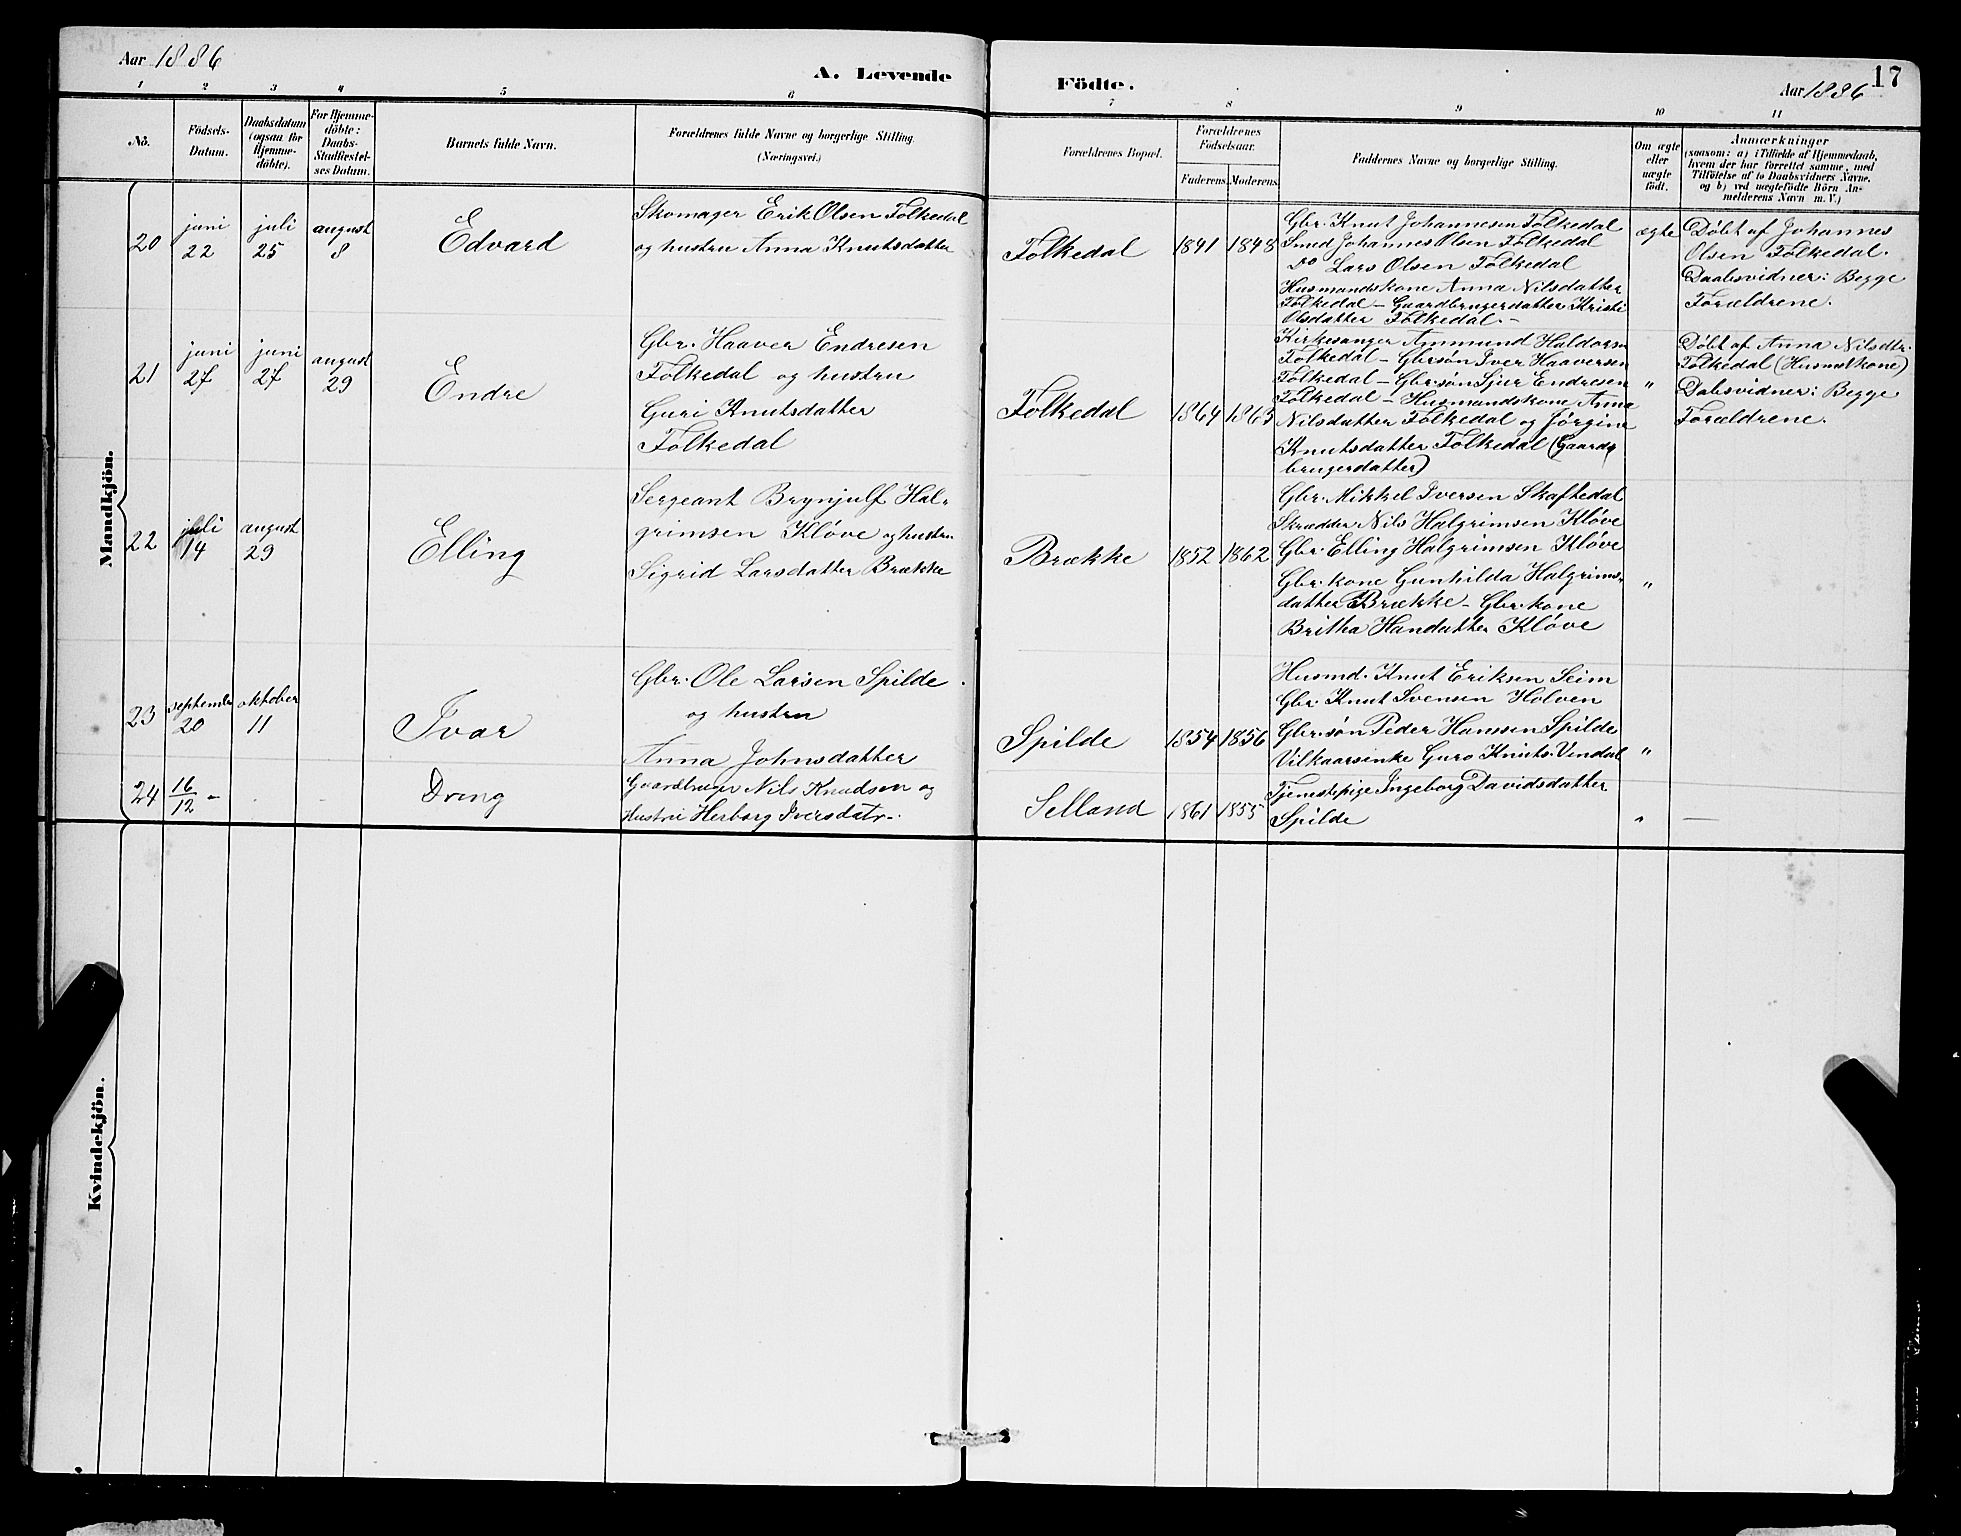 Aar 1886
A. Levende
Födte.
Aar 1886
17
1 2 3 4 5 6 7 8 9 10 11
No.
Födsels-
Datum.
Daabsdatum
(ogsaa for
Hjemme-
döbte).
For Hjemme-
döbte:
Daabs-
Stadfæstel-
ses Datum.
Barnets fulde Navn.
Forældrenes fulde Navne og borgerlige Stilling.
(Næringsvei.)
Forældrenes Bopæl.
Forældrenes
Födselsaar.
Faderens. Moderens.
Faddernes Navne og borgerlige Stilling.
Om ægte
eller
uægte
födt.
Anmærkninger
(saasom: a) i Tilfælde af Hjemmedaab,
hvem der har forrettet samme, med
Tilföielse af to Daabsvidners Navne,
og b) ved uægtefödte Börn An-
melderens Navn m. V.)
Mandkjön.
20
juni
22
juli
25
august
8
Edvard
Skomager Erik Olsen Folkedal
og hustru Anna Knutsdatter
Folkedal
1841 1848
Gbr. Knut Johannesen Folkedal
Smed Johannes Olsen Folkedal
Do Lars Olsen Folkedal
Husmandskone Anna Nilsdatter
Folkedal – Gaardbrugerdatter Kristi
Olsdatter Folkedal. –
ægte
Døbt af Johannes
Olsen Folkedal.
Daabsvidner: Begge
Forældrene.
21
juni
27
juni
27
august
29
Endre
Gbr. Haaver Endresen
Folkedal og hustru
Guri Knutsdatter
Folkedal
Folkedal
1864 1863
Kirkesanger Ammund Haldorsen
Folkedal – Gbrsøn Iver Haaversen
Folkedal – Gbr.søn Sjur Endresen
Folkedal – Husmandskone Anna
Nilsdatter Folkedal og Jørgine
Knutsdatter Folkedal (Gaard-
brugerdatter)
"
Døbt af Anna Nilsdtr.
Folkedal (Husmdkone)
Dabsvidner: Begge
Forældrene.
22
juli
14
august
29
Elling
Sergeant Brynjulf Hal-
grimsen Kløve og hustru
Sigrid Larsdatter Brække
Brække
1852 1862
Gbr. Mikkel Iversen Skaftedal
Skrædder Nils Halgrimsen Kløve
Gbr. Elling Halgrimsen Kløve
Gbr. kone Gunhilda Halgrims-
datter Brække – Gbr. kone
Britha Handatter Kløve
"
23
september
20
oktober
11
Ivar
Gbr. Ole Larsen Spilde
og hustru
Anna Johnsdatter
Spilde
1854 1856
Husmd. Knut Eriksen Seim
Gbr. Knut Svensen Holven
Gbr. søn Peder Hanssen Spilde
Vilkaarsenke Guro Knuts. Vindal
"
24
16/12 –
Dreng
Gaardbruger Nils Knudsen og
Hustru Herborg Iversdatr.
Selland
1861 1855
Tjenestepige Ingeborg Davidsdatter
Spilde
"
—
Kvindekjön.